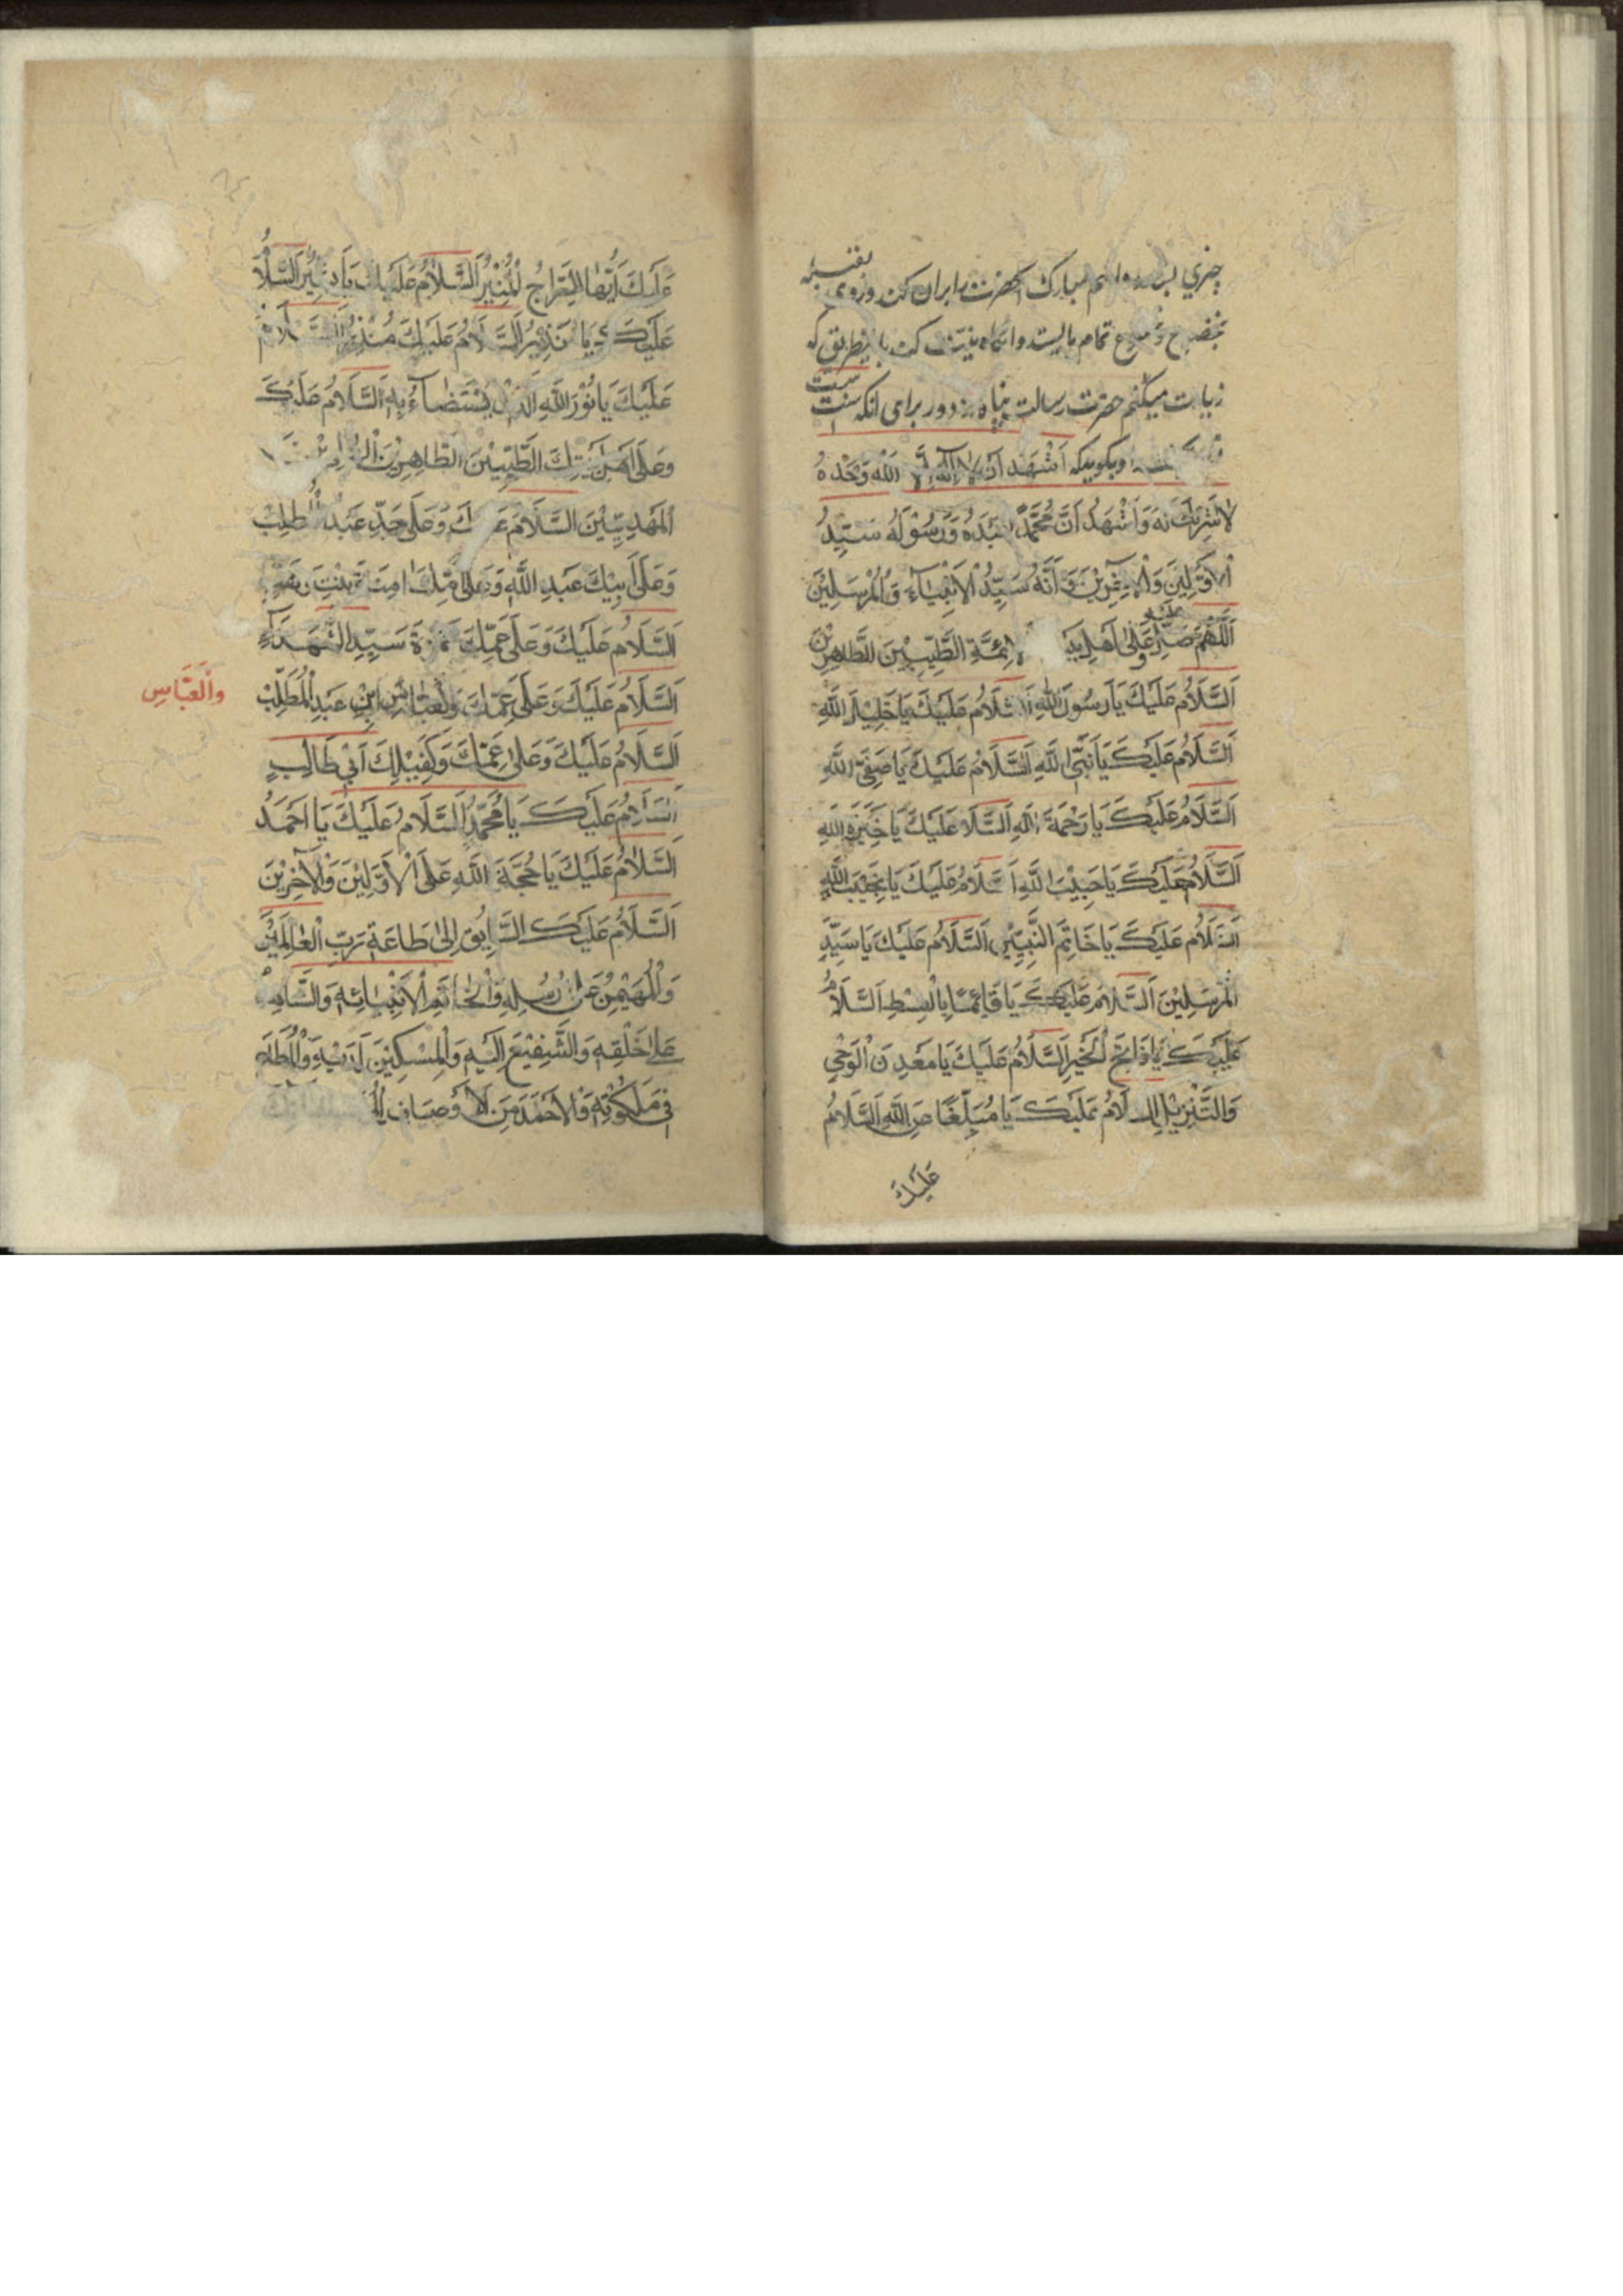 چیزی بر مبارک آنحضرت را بران کند و روی بقبله
بخضوع و خشوع تمام بایستد و آنگاه نیت کند باینطریق که
زیارت میکنم حضرت رسالت پناه را از دور برای آنکه سنت است
و بگوید که اَشْهَدُ اَنْ لا اِلهَ اِلَّا اللهُ وَحْدَهُ
لا شَرِیكَ لَهُ وَاَشْهَدُ اَنَّ مُحَمَّدًا عَبْدُهُ وَرَسُوْلُهُ سَیِّدُ
الْاَوَّلِیْنَ وَالْاٰخِرِیْنَ وَاَنَّهُ سَیِّدُ الْاَنْبِیَآءِ وَالْمُرْسَلِیْنَ
اَللّٰهُمَّ صَلِّ عَلَیْهِ وَعَلٰی اَهْلِ بَیْتِهِ الْاَئِمَّةِ الطَّیِّبِیْنَ الطَّاهِرِیْنَ
اَلسَّلَامُ عَلَیْكَ یَا رَسُوْلَ اللهِ اَلسَّلَامُ عَلَیْكَ یَا خَلِیْلَ اللهِ
اَلسَّلَامُ عَلَیْكَ یَا نَبِیَّ اللهِ اَلسَّلَامُ عَلَیْكَ یَا صَفِیَّ اللهِ
اَلسَّلَامُ عَلَیْكَ یَا رَحْمَةَ اللهِ اَلسَّلَامُ عَلَیْكَ یَا خِیَرَةَ اللهِ
اَلسَّلَامُ عَلَیْكَ یَا حَبِیْبَ اللهِ اَلسَّلَامُ عَلَیْكَ یَا نَجِیْبَ اللهِ
اَلسَّلَامُ عَلَیْكَ یَا خَاتِمَ النَّبِیِّیْنَ اَلسَّلَامُ عَلَیْكَ یَا سَیِّدَ
الْمُرْسَلِیْنَ اَلسَّلَامُ عَلَیْكَ یَا قَائِمًا بِالْقِسْطِ اَلسَّلَامُ
عَلَیْكَ یَا فَاتِحَ الْخَیْرِ اَلسَّلَامُ عَلَیْكَ یَا مَعْدِنَ الْوَحْیِ
وَالتَّنْزِیْلِ اَلسَّلَامُ عَلَیْكَ یَا مُبَلِّغًا عَنِ اللهِ اَلسَّلَامُ
عَلَیْكَ
عَلَیْكَ اَیُّهَا السِّرَاجُ الْمُنِیْرُ اَلسَّلَامُ عَلَیْكَ یَا بَشِیْرُ اَلسَّلَامُ
عَلَیْكَ یَا نَذِیْرُ اَلسَّلَامُ عَلَیْكَ یَا مُنْذِرُ اَلسَّلَامُ
عَلَیْكَ یَا نُوْرَ اللهِ الَّذِیْ یُسْتَضَآءُ بِهِ اَلسَّلَامُ عَلَیْكَ
وَعَلٰی اَهْلِ بَیْتِكَ الطَّیِّبِیْنَ الطَّاهِرِیْنَ الْهَادِیْنَ
الْمَهْدِیِّیْنَ اَلسَّلَامُ عَلَیْكَ وَعَلٰی جَدِّكَ عَبْدِ الْمُطَّلِبْ
وَعَلٰی اَبِیْكَ عَبْدِ اللهِ وَعَلٰی اُمِّكَ اٰمِنَةَ بِنْتِ وَهَبٍ
اَلسَّلَامُ عَلَیْكَ وَعَلٰی عَمِّكَ حَمْزَةَ سَیِّدِ الشُّهَدَآءِ
اَلسَّلَامُ عَلَیْكَ وَعَلٰی عَمِّكَ وَالْعَبَّاسِ ابْنِ عَبْدِ الْمُطَّلِبْ
وَالْعَبَّاسِ
اَلسَّلَامُ عَلَیْكَ وَعَلٰی عَمِّكَ وَكَفِیْلِكَ اَبِیْ طَالِبٍ
اَلسَّلَامُ عَلَیْكَ یَا مُحَمَّدُ اَلسَّلَامُ عَلَیْكَ یَا اَحْمَدُ
اَلسَّلَامُ عَلَیْكَ یَا حُجَّةَ اللهِ عَلَی الْاَوَّلِیْنَ وَالْاٰخِرِیْنَ
اَلسَّلَامُ عَلَیْكَ السَّابِقُ اِلٰی طَاعَةِ رَبِّ الْعَالَمِیْنَ
وَالْمُهَیْمِنُ عَلٰی رُسُلِهِ وَالْخَاتَمِ الْاَنْبِیَائِهِ وَالشَّاهِدُ
عَلٰی خَلْقِهِ وَالشَّفِیْعَ اِلَیْهِ وَالْمِسْكِیْنَ لَدَیْهِ وَالْمُطَاعُ
فِیْ مَلَكُوْتِهِ وَالْاَحْمَدَ مِنَ الْاَوْصَافِ